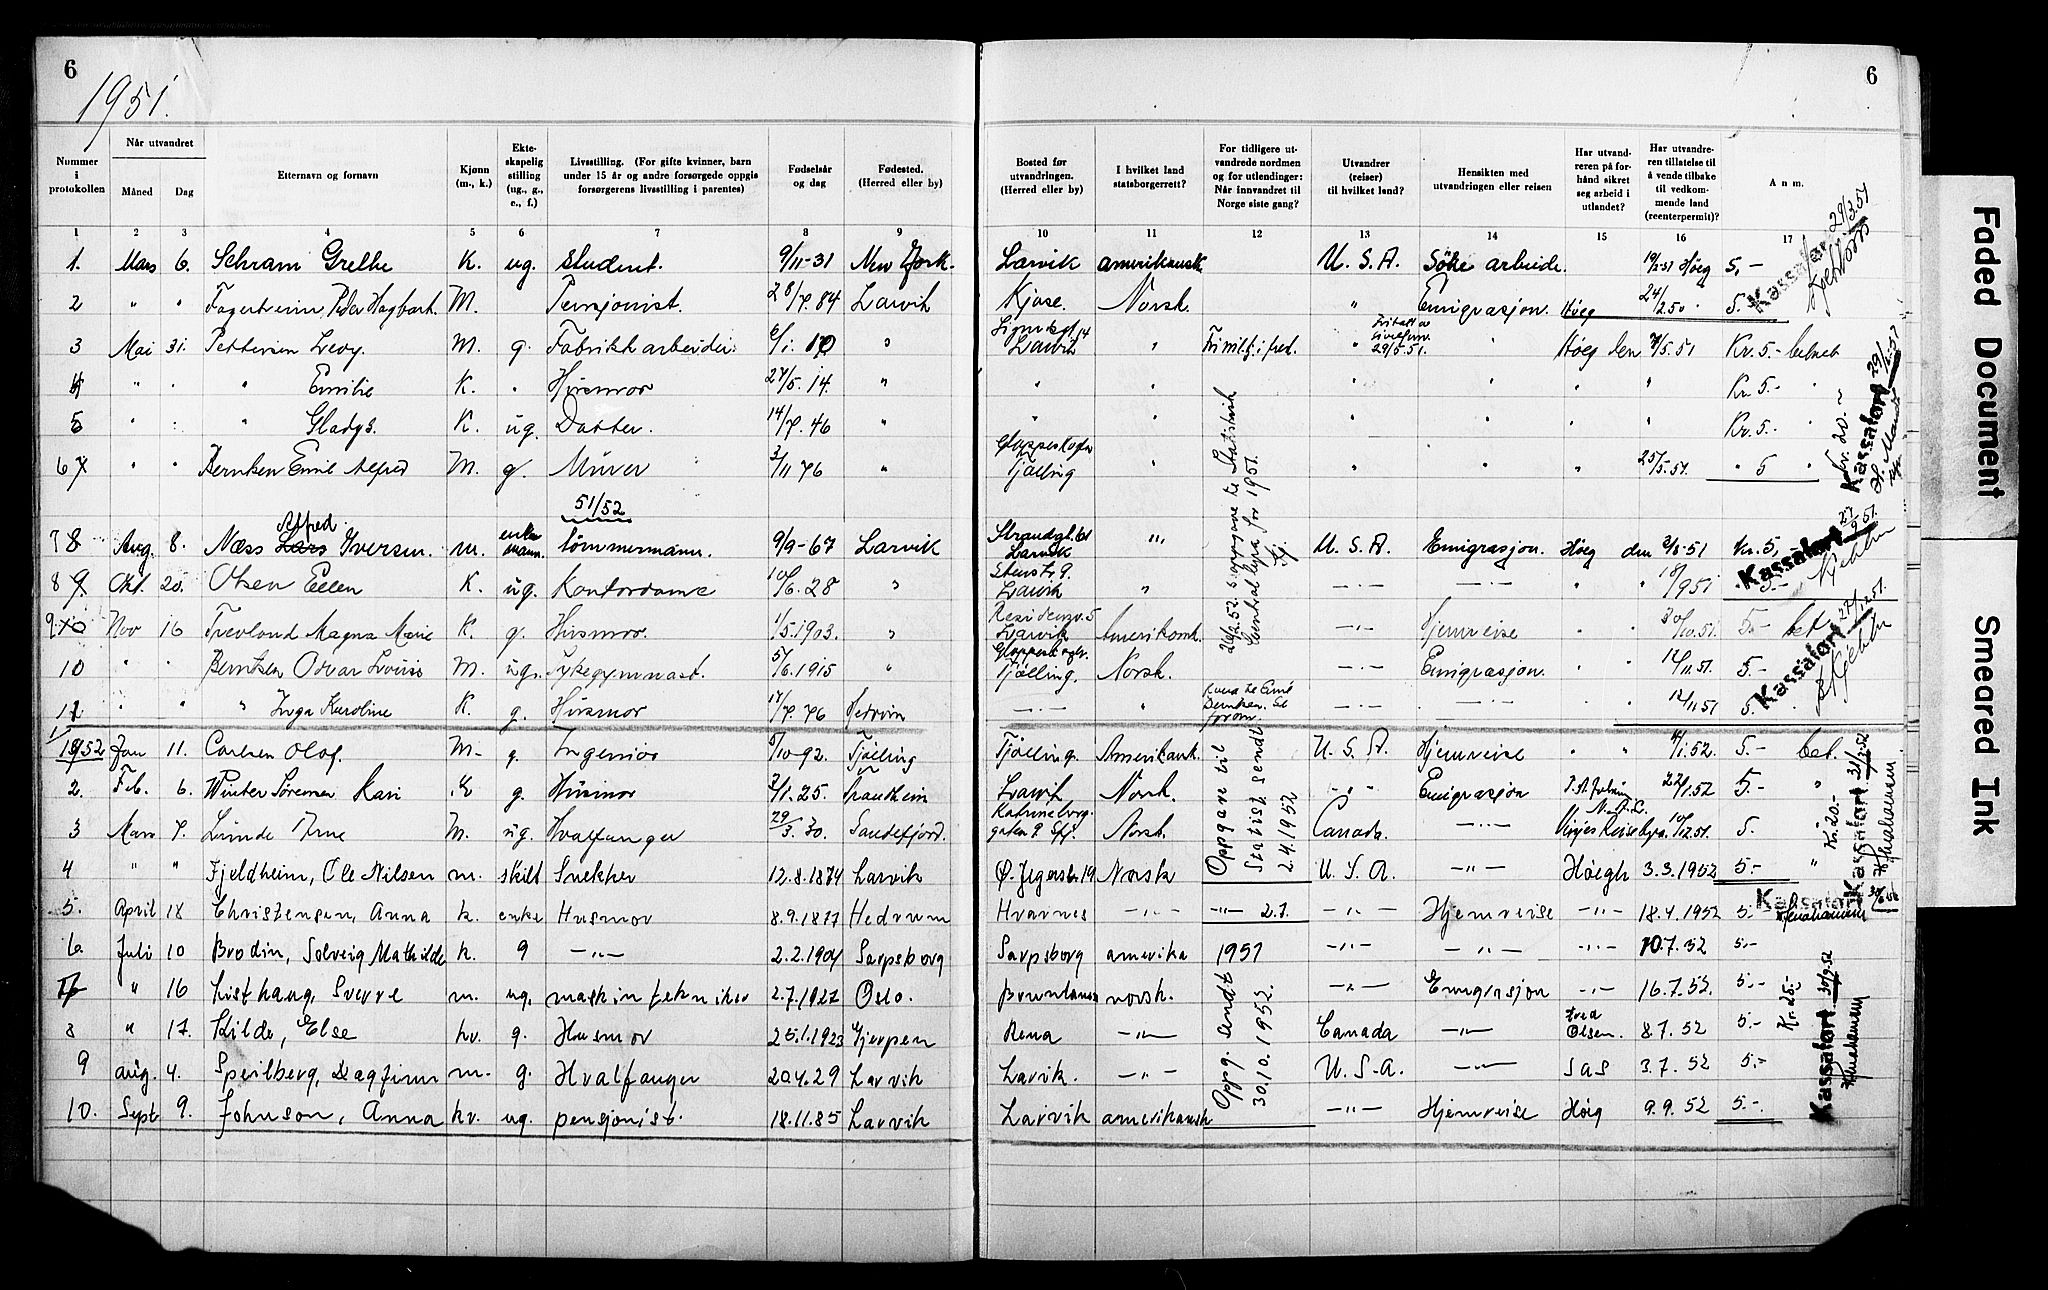 6
6
1951.
Nummer i protokollen | Når utvandret | Måned | Dag | Etternavn og fornavn | Kjønn (m., k.) | Ekteskapelig stilling (ug., g., e., f.) | Livsstilling. (For gifte kvinner, barn under 15 år og andre forsørgede oppgis forsørgerens livsstilling i parentes) | Fødselsår og dag | Fødested. (Herred eller by) | Bosted før utvandringen. (Herred eller by) | I hvilket land statsborgerrett? | For tidligere utvandrede nordmen og for utlendinger: Når innvandret til Norge siste gang? | Utvandrer (reiser) til hvilket land? | Hensikten med utvandringen eller reisen | Har utvandreren på forhånd sikret seg arbeid i utlandet? | Har utvandreren tillatelse til å vende tilbake til vedkommende land (reenterpermit)? | Anm.
1 2 3 4 5 6 7 8 9 10 11 12 13 14 15 16 17
1. Mars 6. Schram Grethe K. ug. student. 9/11-31 New York. Larvik amerikansk U.S.A. Søke arbeide. Høeg 5,-
2 " " Fagerheim, Peder Hagbart M. Pensjonist. 28/7.84 Larvik Kjose. Norsk. " Emigrasjon. Høeg 24/2.50 5.
3 Mai 31. Pettersen Levy. M. g. Fabrikkarbeider. 6/1.10 " Larvik " " 29/5.51. Høeg den /5.51 Kr. 5.-
4 " " " Emilie K. " Husmor 27/5.14. " " " " " " Kr. 5.-
5 " " " Gladys. K. ug. Datter. 14/7.46 " " " " " " Kr. 5.-
6 " " Berntsen Emil Alfred M. g. Murer 3/11 76 " Tjølling " " " " 25/5.51. " 5 "
51/52
Alfred
7 8 Aug. 8. Næss Lars Iversen. m. enkemann. tømmermann. 9/9-67 Larvik Strandgt. 61 Larvik " U.S.A. Emigrasjon. Høeg den 3/8-51 Kr. 5,
8 9 Okt. 20. Olsen Ellen K. ug. Kontordame 10/6.28 " Stenstr 9. Larvik " —"— —"— " " 18/9 51 5.-
9 10 Nov 16 Trevland Magna Marie K. g. Husmor. 1/5.1903. " Larvik Amerikansk —"— Hjemreise " " 30/10.51. 5.- bet
10 " " Berntsen Oscar Louis M. ug. Sykegymnast. 5/6.1915 " Tjølling. Norsk. —"— Emigrasjon. " " 12/11.51. 5.-
11 " " " Inga Karoline K. g. Husmor 17/7.76 Hedrum —"— " —"— —"— " " 12/11 51 5.
26/2.52. oppgave til Statistisk Centralbyrå for 1951.
1952 Jan 11. Carlsen Olof. M. g. Ingeniør /10-92. Tjølling Tjølling. Amerikansk. U.S.A. Hjemreise " " /1.52. 5.- bet.
2. Feb. 6. Winter Sørensen Kari K g. Husmor 3/1.25. Trondheim Larvik Norsk. " Emigrasjon 22/1.52 5.- "
3 Mars 7. Lunde Arne M. ug. Hvalfanger 29/3.30. Sandefjord. Katrineborggaten 9. Norsk. Canada. —"— 10/12.51. 5.
4 " " Fjeldheim, Ole Nilsen m. skilt Snekker 12.8.1874 Larvik Ø. Jegersb. 19 Norsk U.S.A. —"— Høegh 3.3.1952 5.- "
Oppgave til Statist. sendt 2.4.1952
5. April 18 Christensen, Anna k. enke Husmor 8.9.1877 Hedrum Hvarnes —"— —"— 2.7. Hjemreise —"— 18.4.1952 5.-
6. Juli 10 Brodin, Solveig Mathilde k. g —"— 2.2.1904 Sarpsborg Sarpsborg amerika 1951 —"— —"— —"— 10.7.52 5.-
7 " 16 Listhaug, Sverre m. ug. maskintekniker 2.7.1927 Oslo. Brunlanes norsk. —"— Emigrasjon —"— 16.7.52. 5.-
8 " 17. Kilde, Else kv. g. Husmor 25.1.1923 Gjerpen Rena —"— Canada —"— Fred Olsen. 8.7.52 5.-
9 aug. 4. Speilberg, Dagfinn m. g. Hvalfanger 20.4.29 Larvik Larvik. —"— U.S.A. —"— SAS 3.7.52 5.-
10. Sept 9. Johnson, Anna kv. ug. pensjonist. 18.11.85 Larvik Larvik amerikansk —"— Hjemreise Høig 9.9.52 5.-
Oppg. sendt 30.10.1952.
Kassaført 29/3.51
Kassaført 29/6-51
Kr. 20.-
Kassaført 27/9 51.
Kassaført 27/12 51.
Kassaført 31/3 52
Kr. 20.-
Kassaført 30/6 52
Kassaført 30/9.52
Kr. 25.-
Faded Document
Smeared Ink